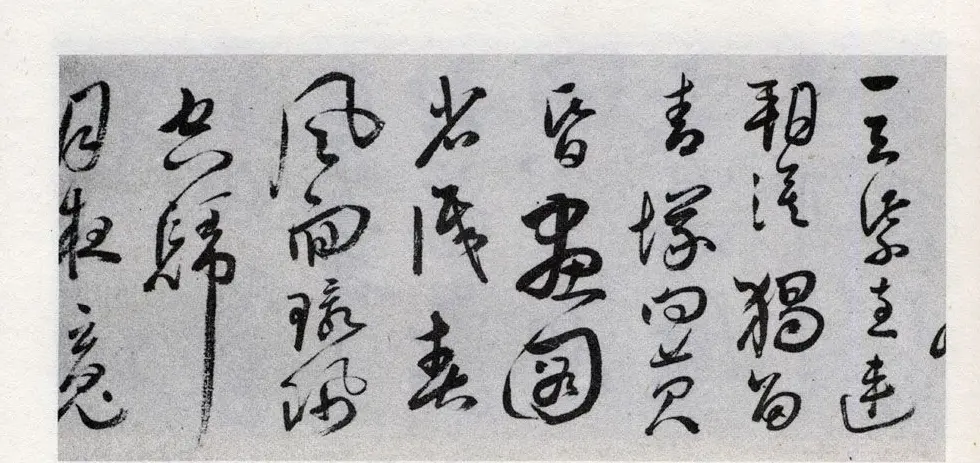 一去紫臺連
朔漠獨留
青塚向黃
昏畫圖
省識春
風面環珮
空歸
月夜魂